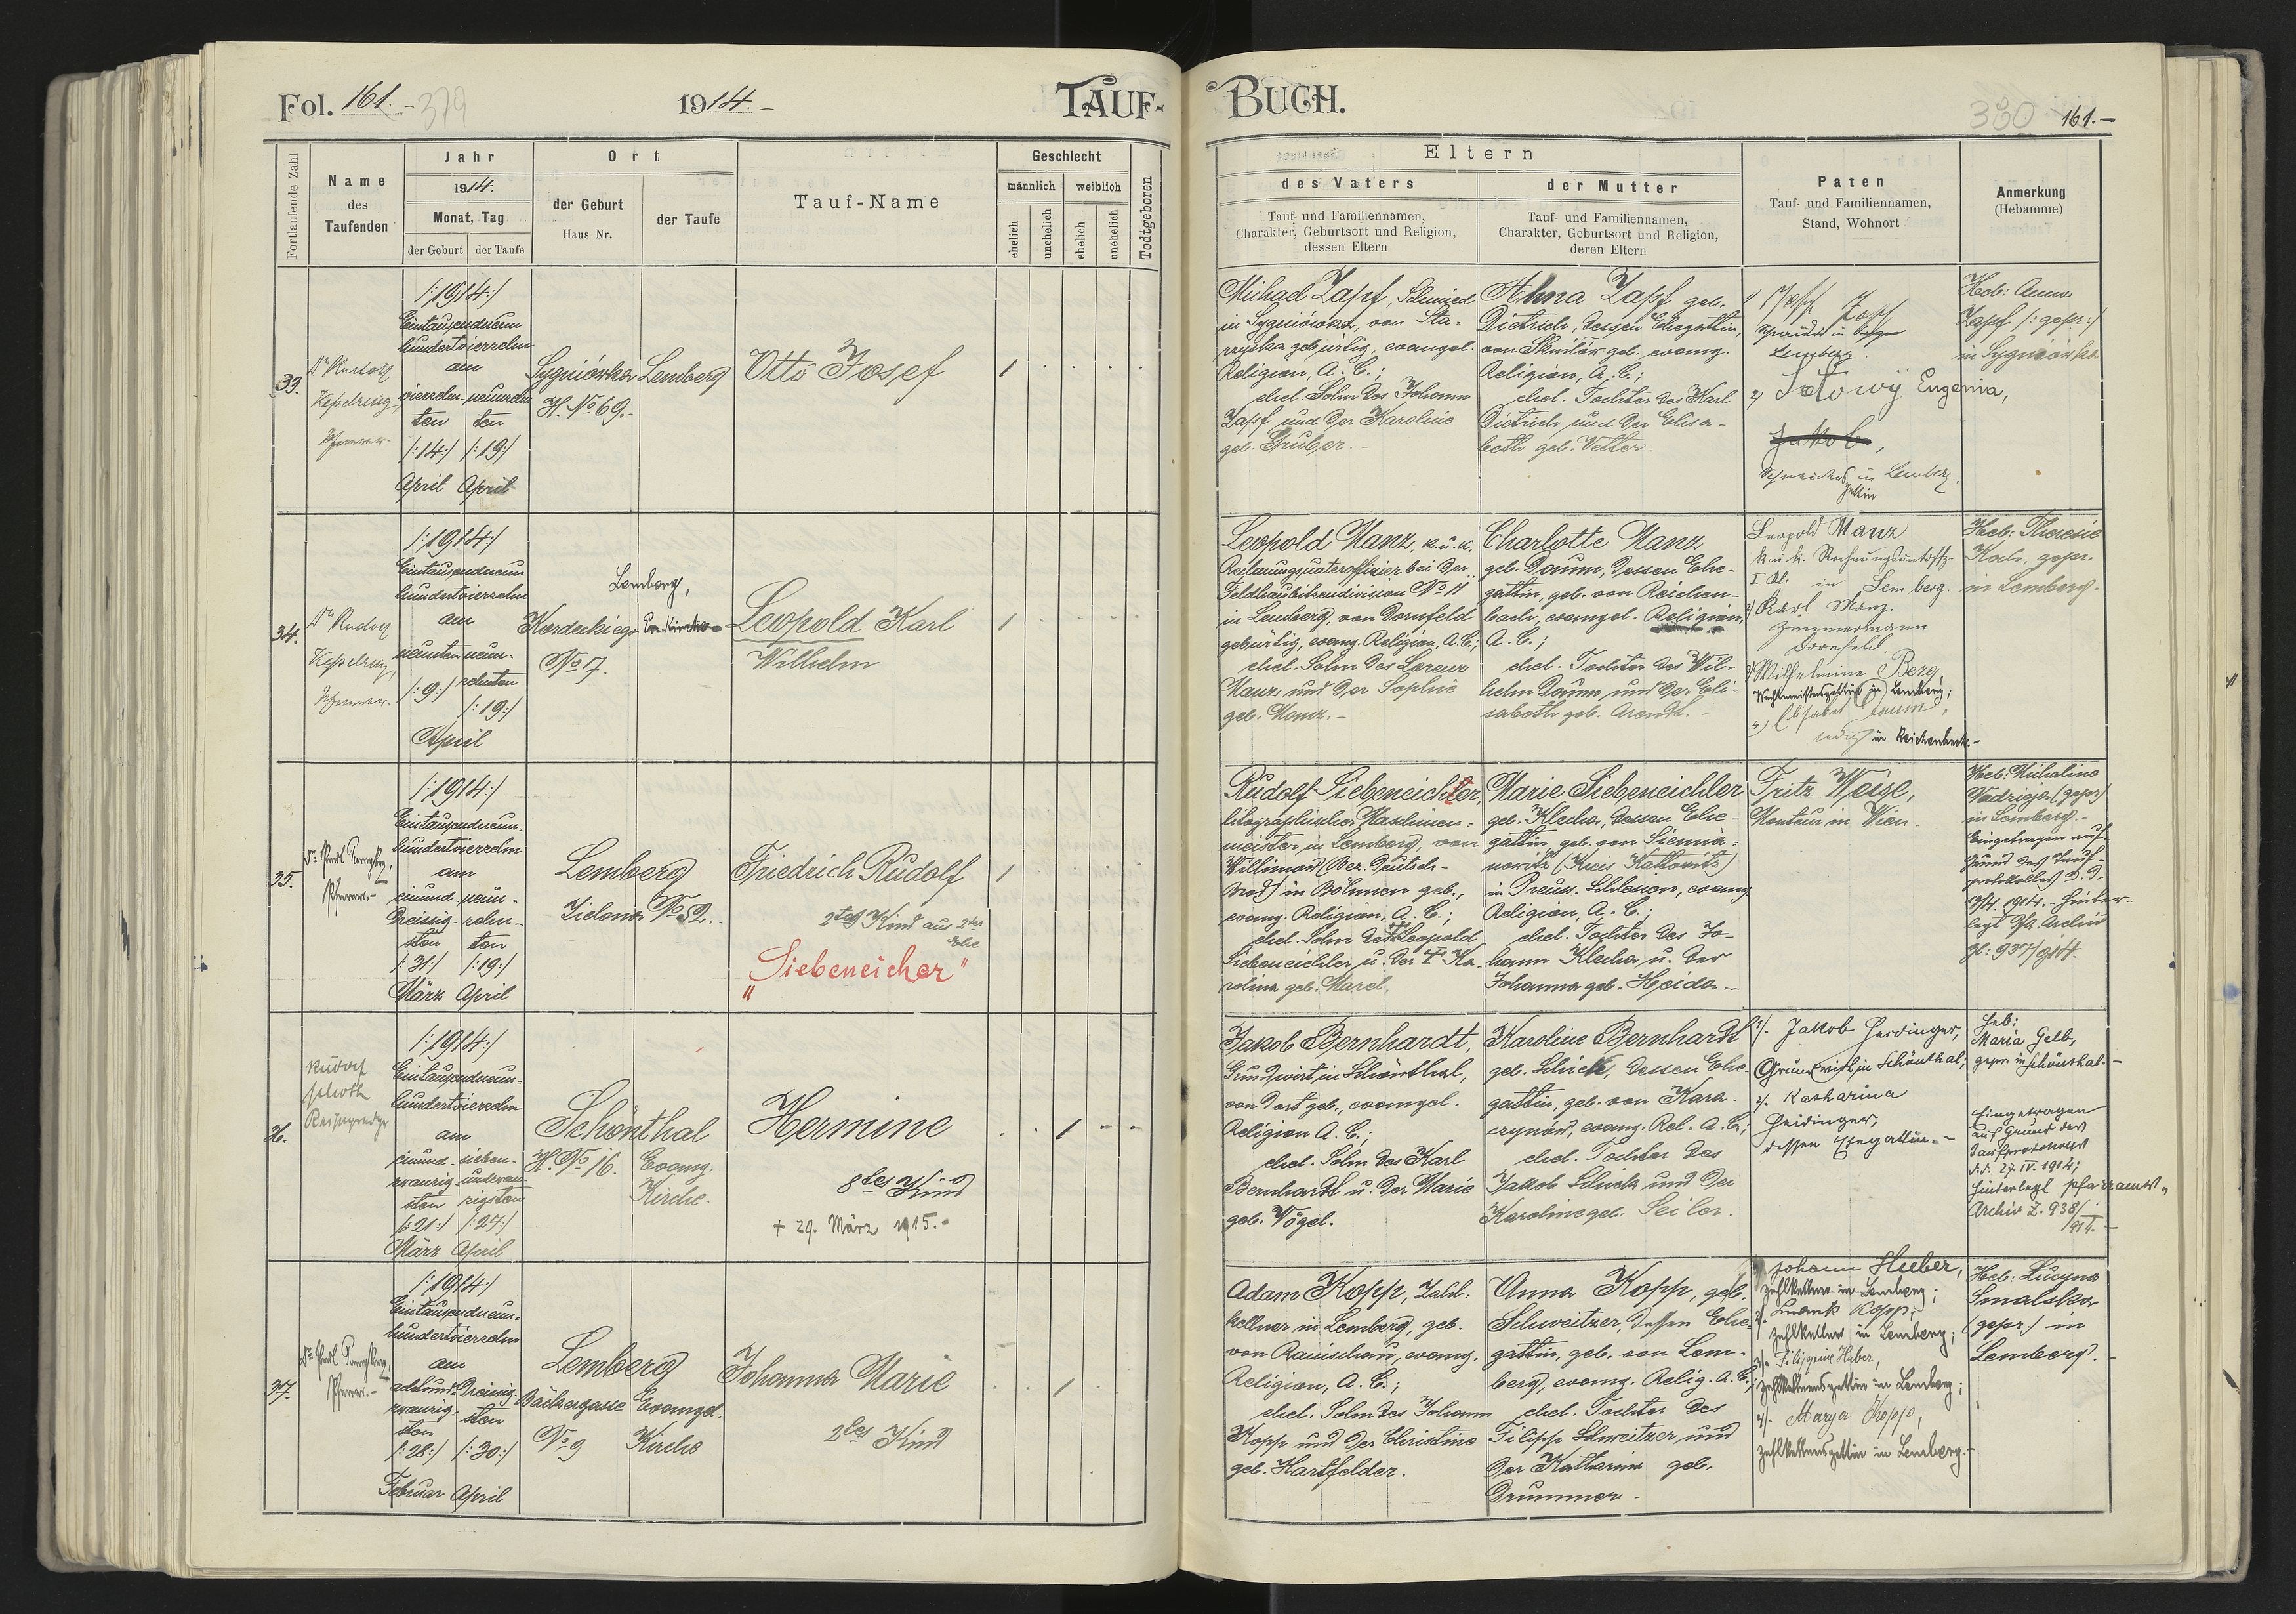 Fol. 161.- 379
1914.-
TAUF-
Fortlaufende Zahl
Name
des
Taufenden
Jahr
1914.
Monat, Tag
der Geburt
der Taufe
Ort
der Geburt
Haus Nr.
der Taufe
Tauf-Name
Geschlecht
männlich
weiblich
ehelich
unehelich
ehelich
unehelich
Todtgeboren
33.
/:1914:/
Eintausendneun
hundertvierzehn
am
vierzehn- neunzehn
ten ten
/:14:/ /:19:/
April April
Sygniówka
H. No 69.-
Lemberg
Otto Josef
1
34.
Dr Rudolf
Kesselring
Pfarrer.
/:1914:/
Eintausendneun
hundertvierzehn
am
neunten neun-
zehnten
/:9:/
/:19:/
April
Kordeckiego
No 7.
Lemberg,
Ev. Kirche
Leopold Karl
Wilhelm
1
35.
Pfarrer.-
/:1914:/
Eintausendneun-
hundertvierzehn
am
einund- neun-
dreissig- zehn-
sten ten
/:31:/ /:19:/
März April
Lemberg
Zielona No 52.
Friedrich Rudolf
2tes Kind aus 2ter
Ehe
"Siebeneicher"
1
36.
Rudolf
/:1914:/
Eintausendneun-
hundertvierzehn
am
einund- sieben-
zwanzig- undzwan-
sten zigsten
/:21:/ /:27:/
März April
Schönthal
H. No 16.
Evang.
Kirche.
Hermine
8tes Kind
+ 29. März 1915.-
1
37.
Pfarrer.-
/:1914:/
Eintausendneun-
hundertvierzehn
am
achtund- dreissig-
zwanzig- sten
sten
/:28:/ /:30:/
Februar April
Lemberg
Bäckergasse
No 9
Evangel.
Kirche
Johanna Marie
2tes Kind
1
BUCH.
380 161.-
Eltern
des Vaters
Tauf- und Familiennamen,
Charakter, Geburtsort und Religion,
dessen Eltern
der Mutter
Tauf- und Familiennamen,
Charakter, Geburtsort und Religion,
deren Eltern
Paten
Tauf- und Familiennamen,
Stand, Wohnort
Anmerkung
(Hebamme)
Michael Zapf, Schmied
in Sygniówka, von Sta-
rzyska gebürtig, evangel.
Religion, A. C.;
ehel. Sohn des Johann
Zapf und der Karoline
geb. Gruber.-
Anna Zapf geb.
Dietrich, dessen Ehegattin,
von Skniłów geb. evang.
Religion, A. C.;
ehel. Tochter des Karl
Dietrich und der Elisa-
beth geb. Vetter.
Lemberg.
2) Eugenia,
Jakob,
in Lemberg.
Heb: Anna
Zapf /:gepr:/
in Sygniówka
Leopold Manz, k. u. k.
Rechnungsunteroffizier bei der
Feldhaubitzendivision No 11
in Lemberg, von Dornfeld
gebürtig, evang. Religion, A. C.;
ehel. Sohn des Lorenz
Manz und der Sophie
geb. Manz.-
Charlotte Manz
geb. Daum, dessen Ehe-
gattin, geb. von Reichen-
bach, evangel. Religion,
A. C.;
ehel. Tochter des Wil-
helm Daum und der Eli-
sabeth geb. Arendt.-
Leopold Manz
k. u. k. Rechnungsuntoffz.
I Kl. in Lemberg.
2) Karl Manz.
Zimmermann
Dornfeld.
3) Wilhelmine Berg
Wachtmeistersgattin in Lemberg;
4) Elisabet Daum,
ledig in Reichenbach.-
Heb: Theresie
Koch, gepr.
in Lemberg.
Rudolf Siebeneichler,
litographischer Maschinen-
meister in Lemberg, von
Willimow (Bez. Deutsch-
brod) in Böhmen geb.,
evang. Religion, A. C.;
ehel. Sohn des Leopold
Siebeneichler u. der Ka-
rolina geb. Marel.
Marie Siebeneichler
geb. Klecha, dessen Ehe-
gattin, geb. von Siemia-
nowitz (Kreis Kattowitz)
in Preuss. Schlesien, evang.
Religion, A. C.;
ehel. Tochter des Jo-
hann Klecha u. der
Johanna geb. Heida.-
Fritz Weise,
Monteur in Wien.
Heb: Michaline
(gepr.)
in Lemberg.-
Eingetragen auf
Grund des Tauf-
protokolles d. d.
19/4. 1914.- hinter-
legt Pfa. Archiv
Zl: 937/914.
Jakob Bernhardt,
Grundwirt in Schönthal,
von dort geb., evangel.
Religion A. C.;
ehel. Sohn des Karl
Bernhardt u. der Marie
geb. Vögel.
Karoline Bernhardt
geb. Schick, dessen Ehe-
gattin, geb. von Kara-
czynów, evang. Rel. A. C.;
ehel. Tochter des
Jakob Schick und der
Karoline geb. Seiler.
1). Jakob Heidinger,
Grundwirt in Schönthal;
2). Katharina
Heidinger,
dessen Ehegattin.-
Heb:
Maria Gelb,
gepr. in Schönthal.-
Eingetragen
auf Grund des
Taufprotokolles
d. d. 27. IV. 1914;
hinterlegt Pfarramts-
Archiv Z. 938/
914.-
Adam Kopp, Zahl-
kellner in Lemberg, geb.
von Ranischau, evang.
Religion, A. C.;
ehel. Sohn des Johann
Kopp und der Christine
geb. Hartfelder.
Anna Kopp, geb.
Schweitzer, dessen Ehe-
gattin, geb. von Lem-
berg, evang. Relig. A. C.;
ehel. Tochter des
Filipp Schweitzer und
der Katharina geb.
Drummer.
Johann Huber,
Zahlkellner in Lemberg;
Kopp,
Zahlkellner in Lemberg;
3). Filippine Huber,
Zahlkellnersgattin in Lemberg;
4). Marya Kopp,
Zahlkellnersgattin in Lemberg.-
Heb: Lucyna
Smalska
(gepr.) in
Lemberg.